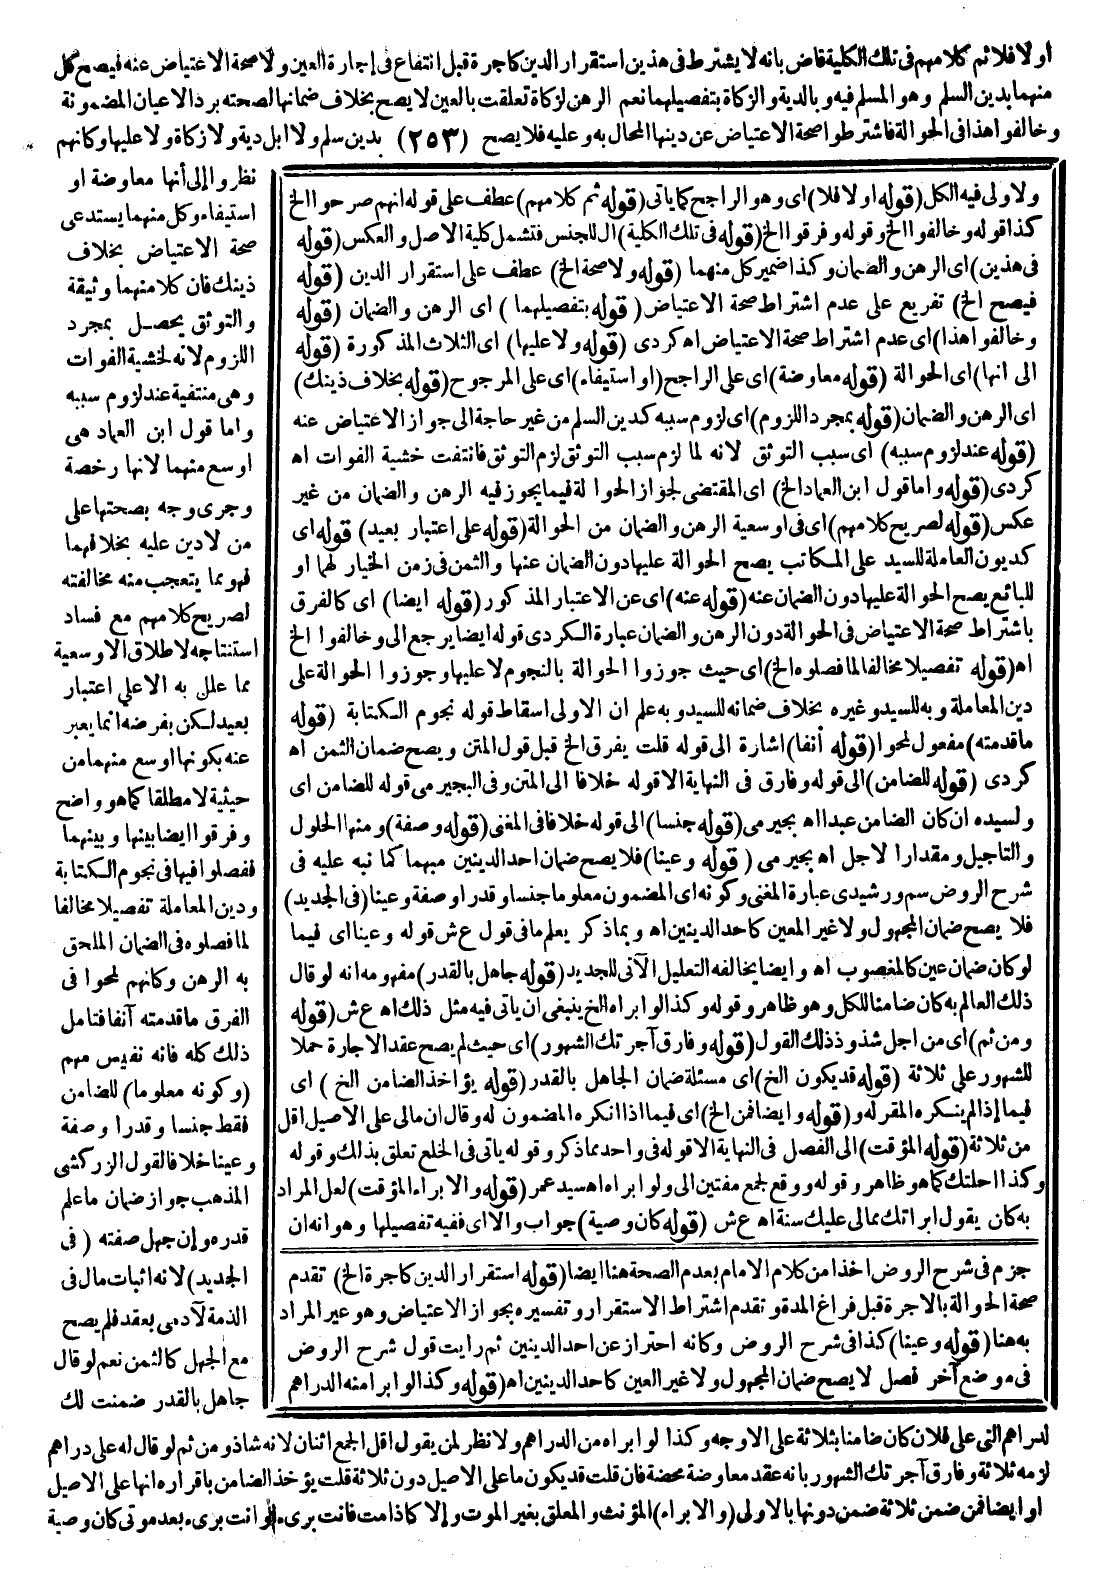 اولا فلا ثم كلامهم فى تلك الكلية قاض بانه لا يشترط فى هذين استقرار الدين كاجرة قبل انتفاع فى إجارة العين ولا صحة الاعتياض عنه فيصح كل
منهما بدين السلم وهو المسلم فيه وبالدية والزكاة بتفصيلهما نعم الرهن لزكاة تعلقت بالعين لا يصح بخلاف ضمانها لصحته برد الاعيان المضمونة
وخالفوا هذا فى الحوالة فاشترطوا صحة الاعتياض عن دينها المحال به وعليه فلا يصح (٢٥٣) بدين سلم ولا ابل دية ولا زكاة ولا عليها وكانهم
نظروا إلى أنها معاوضة او
استيفاء وكل منهما يستدعى
صحة الاعتياض بخلاف
ذينك فان كلا منهما وثيقة
والتوثق يحصل بمجرد
اللزوم لانه لخشية الفوات
وهى منتفية عند لزوم سببه
واما قول ابن العماد هى
اوسع منهما لانها رخصة
وجرى وجه بصحتها على
من لا دين عليه بخلافهما
فهو مما يتعجب منه مخالفته
لصريح كلامهم مع فساد
استنتاجه لاطلاق الاوسعية
مما علل به الا على اعتبار
بعيد لكن بفرضه انما يعبر
عنه بكونها اوسع منهما من
حيثية لا مطلقا كما هو واضح
وفرقوا ايضا بينها وبينهما
ففصلوا فيها فى نجوم الكتابة
ودين المعاملة تفصيلا مخالفا
لما فصلوه فى الضمان الملحق
به الرهن وكانهم لمحوا فى
الفرق ما قدمته آنفا فتامل
ذلك كله فانه نفيس مهم
(وكونه معلوما) للضامن
فقط جنسا وقدرا وصفة
وعينا خلافا لقول الزركشى
المذهب جواز ضمان ما علم
قدره وإن جهل صفته (فى
الجديد) لانه اثبات مال فى
الذمة لآدمى بعقد فلم يصح
مع الجهل كالثمن نعم لو قال
جاهل بالقدر ضمنت لك
لدراهم التى على فلان كان ضامنا بثلاثة على الاوجه وكذا لو ابراه من الدراهم ولا نظر لمن يقول اقل الجمع اثنان لانه شاذ ومن ثم لو قال له على دراهم
لزمه ثلاثة وفارق آجرتك الشهور بانه عقد معاوضة محضة فان قلت قد يكون ما على الاصيل دون ثلاثة قلت يؤخذ الضامن باقراره انها على الاصيل
او ايضا فمن ضمن ثلاثة ضمن دونها بالاولى (والابراء) المؤنث والمعلق بغير الموت وإلا كاذا مت فانت برىء او انت برىء بعد موتى كان وصية
ولاولى فيه الكل (قوله اولا فلا) اى وهو الراجح كما ياتى (قوله ثم كلامهم) عطف على قوله انهم صرحوا الخ
كذا قوله وخالفوا الخ وقوله وفرقوا الخ (قوله فى تلك الكلية) ال للجنس فتشمل كلية الاصل والعكس (قوله
فى هذين) اى الرهن والضمان وكذا ضمير كل منهما (قوله ولا صحة الخ) عطف على استقرار الدين (قوله
فيصح الخ) تفريع على عدم اشتراط صحة الاعتياض (قوله بتفصيلهما) اى الرهن والضمان (قوله
وخالفوا هذا) اى عدم اشتراط صحة الاعتياض اه كردى (قوله ولا عليها) اى الثلاث المذكورة (قوله
الى انها) اى الحوالة (قوله معاوضة) اى على الراجح (او استيفاء) اى على المرجوح (قوله بخلاف ذينك)
اى الرهن والضمان (قوله بمجرد اللزوم) اى لزوم سببه كدين السلم من غير حاجة الى جواز الاعتياض عنه
(قوله عند لزوم سببه) اى سبب التوثق لانه لما لزم سبب التوثق لزم التوثق فانتفت خشية الفوات اه
كردى (قوله واما قول ابن العماد الخ) اى المقتضى لجواز الحوالة فيما يجوز فيه الرهن والضمان من غير
عكس (قوله لصريح كلامهم) اى فى اوسعية الرهن والضمان من الحوالة (قوله على اعتبار بعيد) قوله اى
كديون العاملة للسيد على المكاتب يصح الحوالة عليها دون الضمان عنها والثمن فى زمن الخيار لهما او
للبائع يصح الحوالة عليها دون الضمان عنه (قوله عنه) اى عن الاعتبار المذكور (قوله ايضا) اى كالفرق
باشتراط صحة الاعتياض فى الحوالة دون الرهن والضمان عبارة الكردى قوله ايضا يرجع الى وخالفوا الخ
اه (قوله تفصيلا مخالفا لما فصلوه الخ) اى حيث جوزوا الحوالة بالنجوم لا عليها وجوزوا الحوالة على
دين المعاملة وبه للسيد وغيره بخلاف ضمانه للسيد وبه علم ان الاولى اسقاط قوله نجوم الكتابة (قوله
ما قدمته) مفعول لمحوا (قوله أنفا) اشارة الى قوله قلت يفرق الخ قبل قول المتن ويصح ضمان الثمن اه
كردى (قوله للضامن) الى قوله وفارق فى النهاية الا قوله خلافا الى المتن وفى البجيرمى قوله للضامن اى
ولسيده ان كان الضامن عبدا اه بجيرمى (قوله جنسا) الى قوله خلافا فى المغنى (قوله وصفة) ومنها الحلول
والتاجيل ومقدارا لاجل اه بجيرمى (قوله وعينا) فلا يصح ضمان احد الدينين مبهما كما نبه عليه فى
شرح الروض سم ورشيدى عبارة المغنى وكونه اى المضمون معلوما جنسا وقدرا وصفة وعينا (فى الجديد)
فلا يصح ضمان المجهول ولا غير المعين كاحد الدينين اه وبما ذكر يعلم ما فى قول ع ش قوله وعينا اى فيما
لو كان ضمان عين كالمغصوب اه وايضا يخالفه التعليل الآتى للجديد (قوله جاهل بالقدر) مفهومه انه لو قال
ذلك العالم به كان ضامنا للكل وهو ظاهر وقوله وكذا لو ابراه الخ ينبغى ان ياتى فيه مثل ذلك اه ع ش (قوله
ومن ثم) اى من اجل شذوذ ذلك القول (قوله وفارق آجرتك الشهور) اى حيث لم يصح عقد الاجارة حملا
للشهور على ثلاثة (قوله قد يكون الخ) اى مسئلة ضمان الجاهل بالقدر (قوله يؤاخذ الضامن الخ) اى
فيما إذا لم ينكره المقر له و (قوله وايضا فمن الخ) اى فيما اذا انكره المضمون له وقال ان مالى على الاصيل اقل
من ثلاثة (قوله المؤقت) الى الفصل فى النهاية الا قوله فى واحد بما ذكر وقوله ياتى فى الخلع تعلق بذلك وقوله
وكذا احلتك كما هو ظاهر وقوله ووقع لجمع مفتين الى ولو ابراه اه سيد عمر (قوله والابراء المؤقت) لعل المراد
به كان يقول ابراتك بمالى عليك سنة اه ع ش (قوله كان وصية) جواب والا اى ففيه تفصيلها وهو انه ان
جزم فى شرح الروض اخذا من كلام الامام بعدم الصحة هنا ايضا (قوله استقرار الدين كاجرة الخ) تقدم
صحة الحوالة بالاجرة قبل فراغ المدة وتقدم اشتراط الاستقرار وتفسيره بجواز الاعتياض وهو غير المراد
به هنا (قوله وعينا) كذا فى شرح الروض وكانه احتراز عن احد الدينين ثم رايت قول شرح الروض
فى موضع آخر فصل لا يصح ضمان المجهول ولا غير العين كاحد الدينين اه (قوله وكذا لو ابرا منه الدراهم